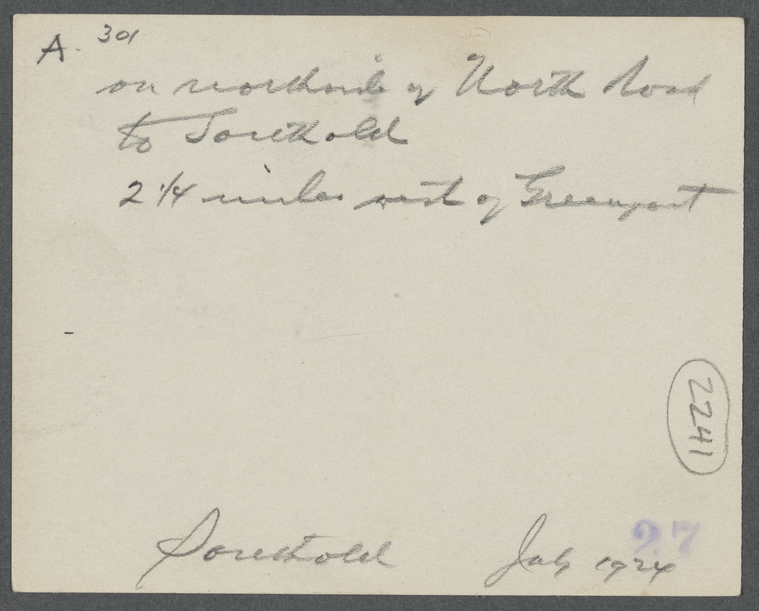 A. 301
on northside of North Road
to Southold
2 1/4 miles west of Greenport
2241
27
Southold July 1924